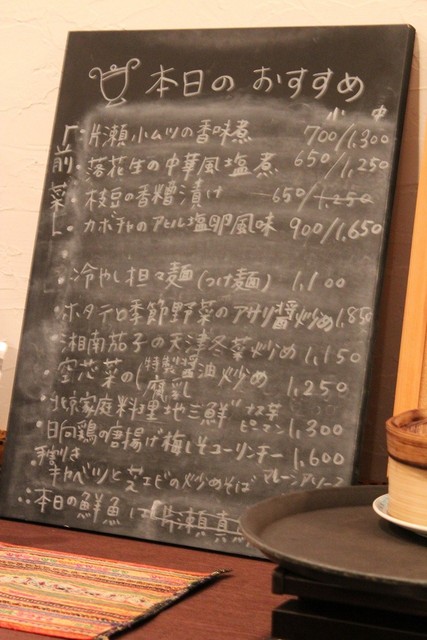 本日の おすすめ
小 中
前菜
・片瀬小ムツの香味煮 700/1,300
・落花生の中華風塩煮 650/1,250
・枝豆の香糟漬け 650/1,250
・カボチャのアヒル塩卵風味 900/1,650
・冷やし担々麺(つけ麺) 1,100
・ホタテと季節野菜のアサリ醤炒め 1,850
・湘南茄子の天津冬菜炒め 1,150
・空芯菜の(特製醤油 腐乳 炒め 1,250
・北京家庭料理"地三鮮" ナス芋ピーマン 1,300
・日向鶏の唐揚げ梅しそユーリンチー 1,600
手割りき
キャベツと芝エビの炒めそば
∴本日の鮮魚は「片瀬真